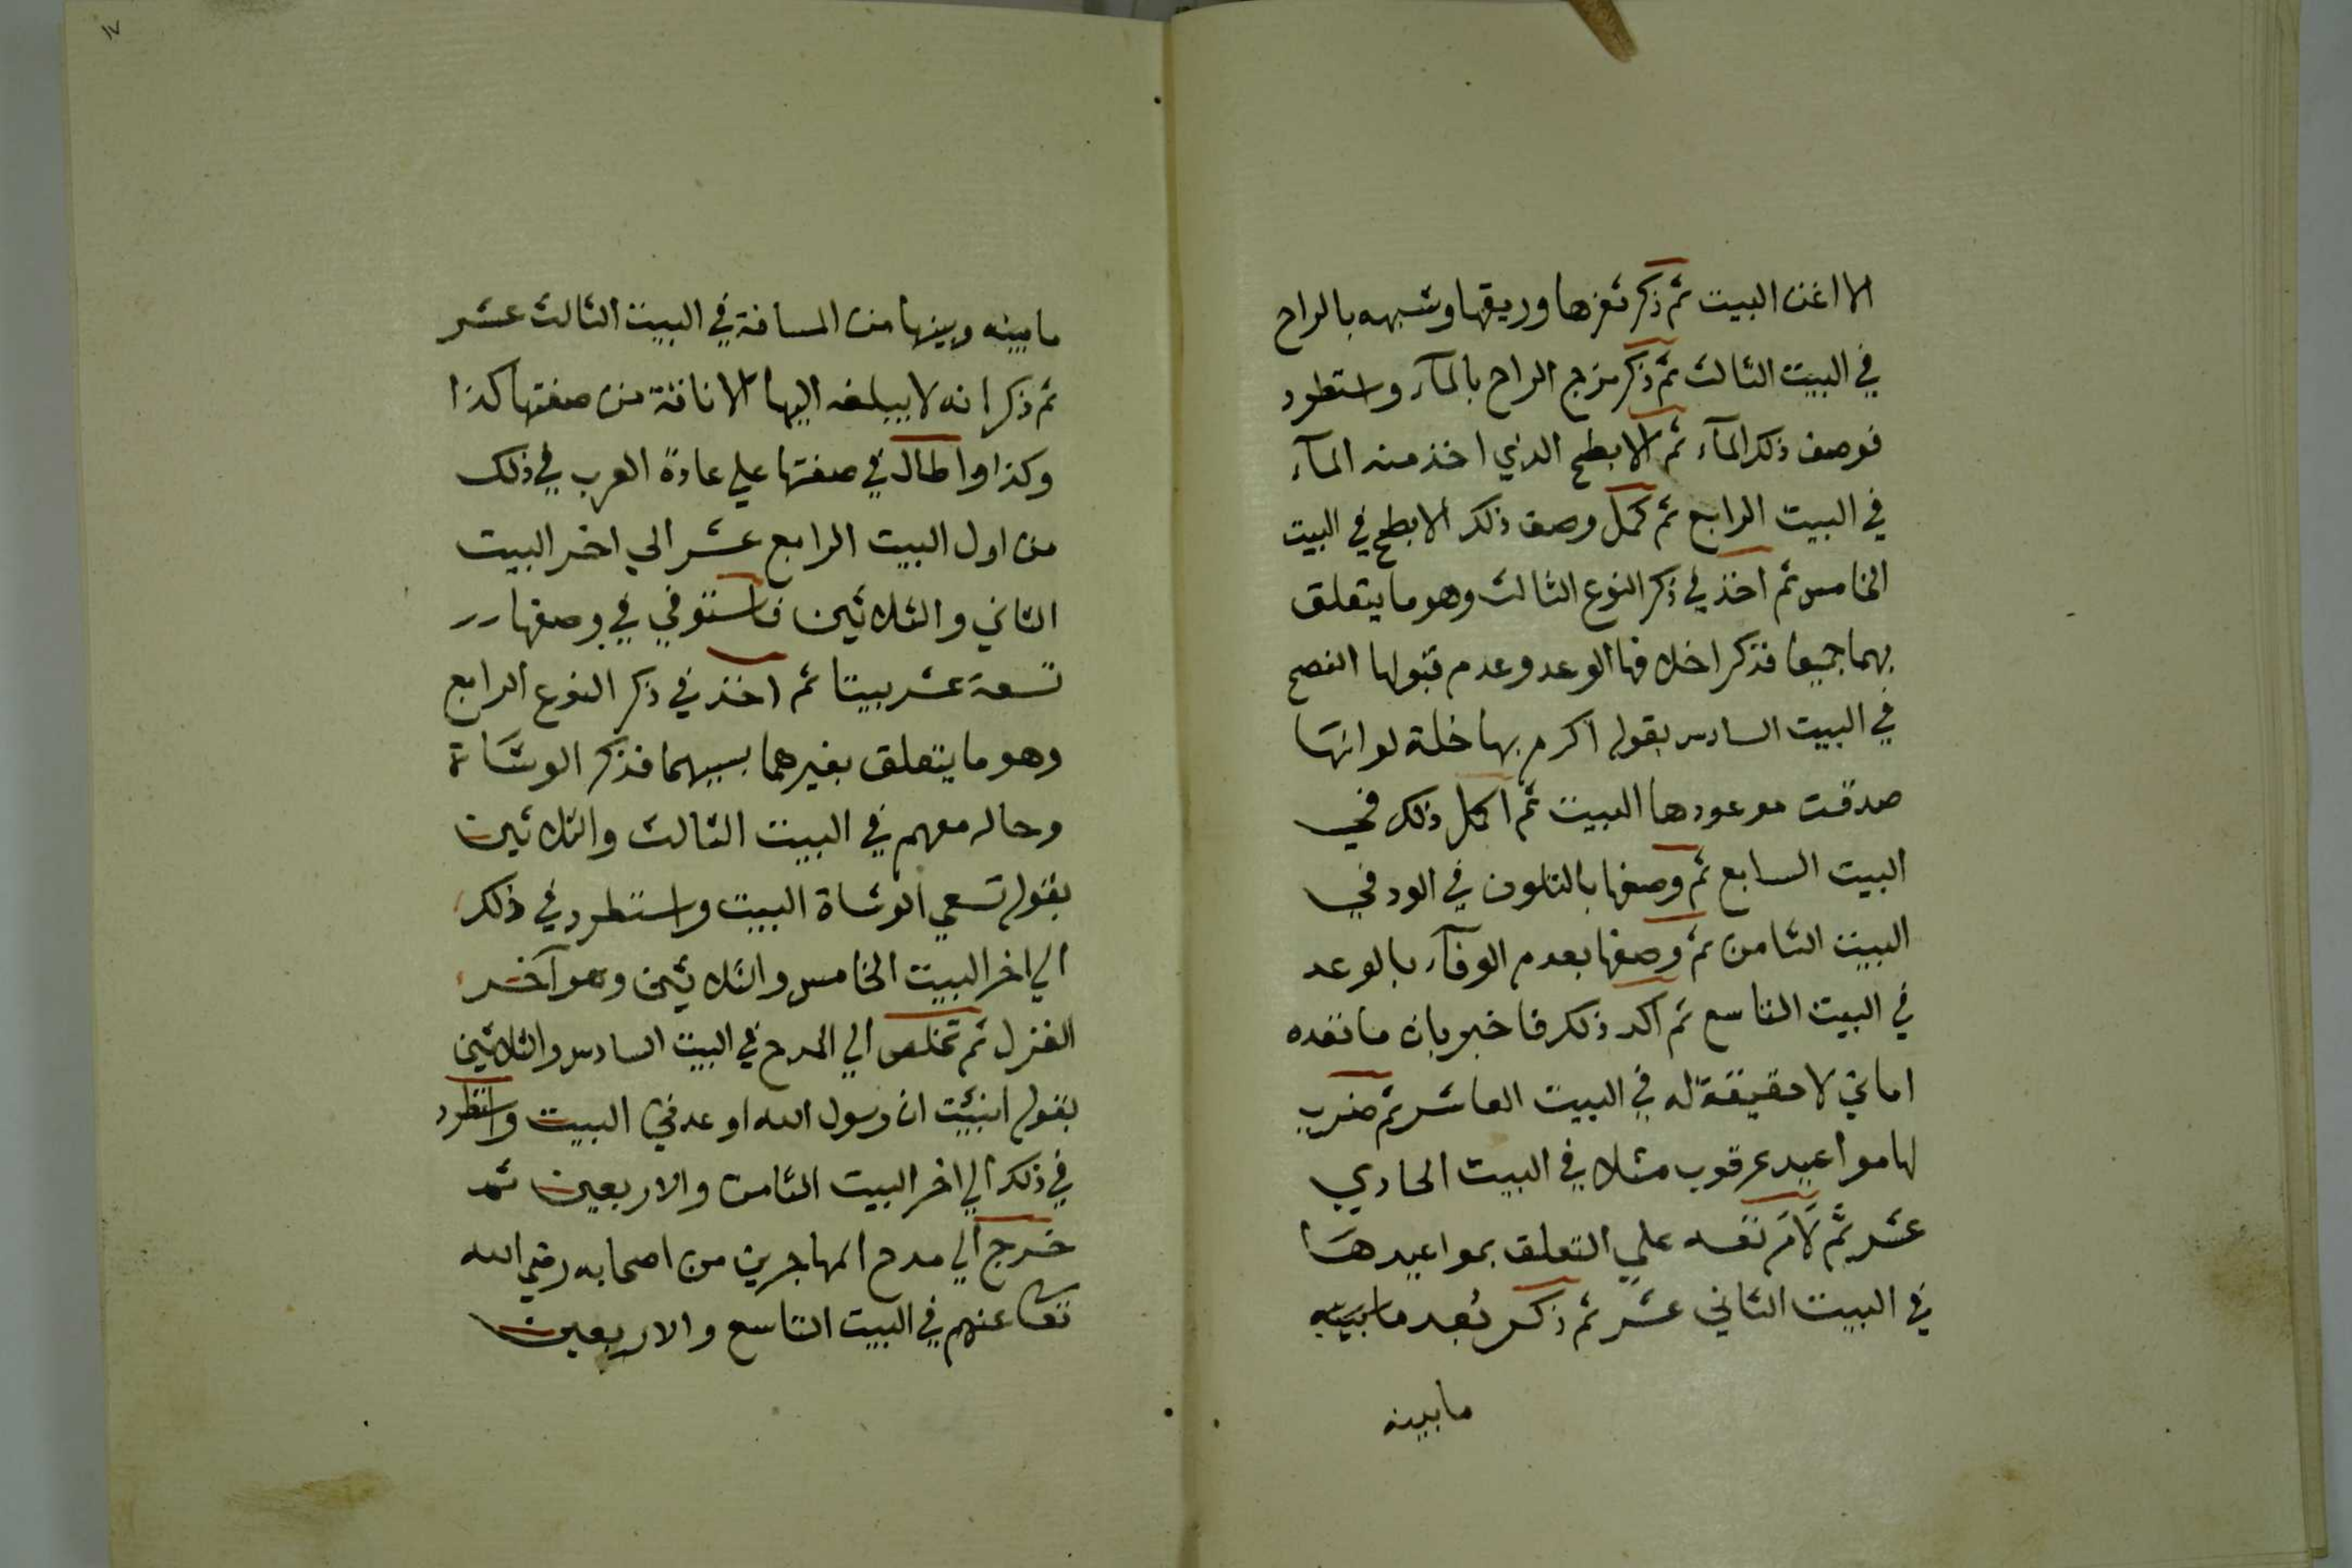 الا اغن البيت ثم ذكر ثغرها وريقها وشبهه بالراح
في البيت الثالث ثم ذكر مزج الراح بالمآء واستطرد
فوصف ذلك المآء ثم الابطح الذي اخذ منه المآء
في البيت الرابع ثم كمل وصف ذلك الابطح في البيت
الخامس ثم اخذ في ذكر النوع الثالث وهو ما يتعلق
بهما جميعا فذكر اخلافها الوعد وعدم قبولها النصح
في البيت السادس بقوله اكرم بها خلة لو انها
صدقت موعودها البيت ثم اكمل ذلك في
البيت السابع ثم وصفها بالتلون في الود في
البيت الثامن ثم وصفها بعدم الوفآء بالوعد
في البيت التاسع ثم اكد ذلك فاخبر بان ما تعده
اماني لا حقيقة له في البيت العاشر ثم ضرب
لها مواعيد عرقوب مثلا في البيت الحادي
عشر ثم لَامَ نفسه علي التعلق بمواعيدها
في البيت الثاني عشر ثم ذكر بُعد ما بينه
مابينه
١٧
ما بينه وبينها من المسافة في البيت الثالث عشر
ثم ذكر انه لا يبلغه اليها الا ناقة من صفتها كذا
وكذا واطال في صفتها علي عادة العرب في ذلك
من اول البيت الرابع عشر الي اخر البيت
الثاني والثلاثين فاستوفي في وصفها
تسعة عشر بيتا ثم اخذ في ذكر النوع الرابع
وهو ما يتعلق بغيرهما بسببهما فذكر الوشاة
وحاله معهم في البيت الثالث والثلاثين
بقوله تسعي الوشاة البيت واستطرد في ذلك
الي اخر البيت الخامس والثلاثين وهو آخر
الغزل ثم تخلص الي المدح في البيت السادس والثلاثين
بقوله انبئت ان رسول الله اوعدني البيت واستطرد
في ذلك الي اخر البيت الثامن والاربعين ثم
خرج الي مدح المهاجرين من اصحابه رضي الله
تعا عنهم في البيت التاسع والاربعين